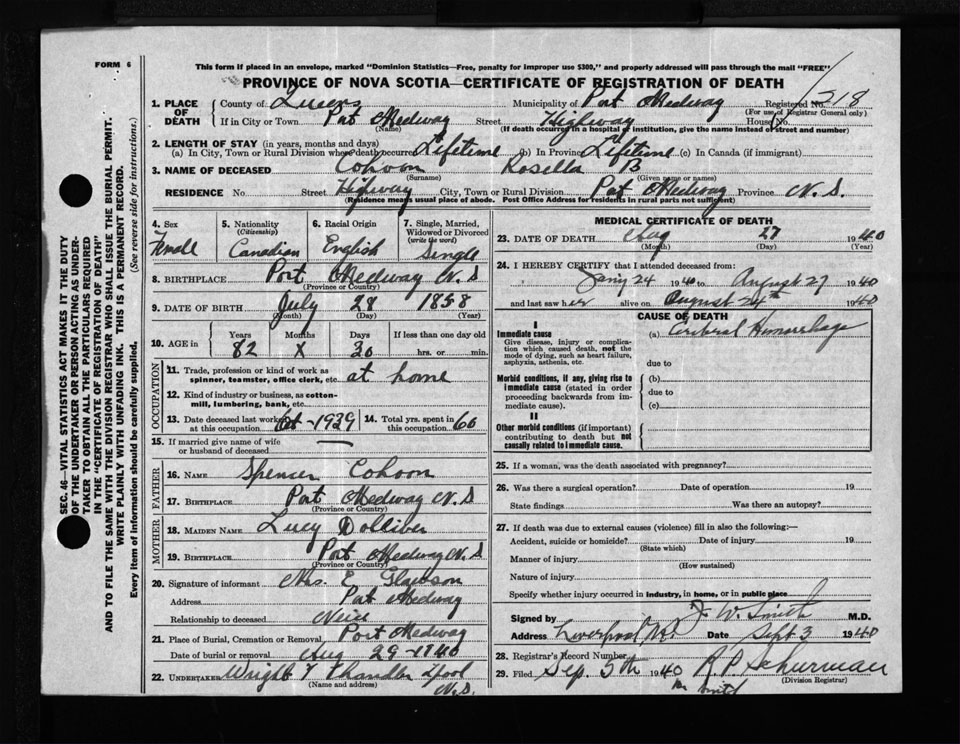 FORM 6
This form if placed in an envelope, marked "Dominion Statistics—Free, penalty for improper use $300," and properly addressed will pass through the mail "FREE"
PROVINCE OF NOVA SCOTIA—CERTIFICATE OF REGISTRATION OF DEATH
1. PLACE OF DEATH County of Queens Municipality of Port Medway Registered No. 218
(For use of Registrar General only)
If in City or Town Port Medway Street Highway House No.
(Name) (If death occurred in a hospital or institution, give the name instead of street and number)
2. LENGTH OF STAY (in years, months and days)
(a) In City, Town or Rural Division where death occurred Lifetime (b) In Province Lifetime (c) In Canada (if immigrant)
3. NAME OF DECEASED Cohoon Rosella B
(Surname) (Given name or names)
RESIDENCE No Street Highway City, Town or Rural Division Port Medway Province N. S.
(Residence means usual place of abode. Post Office Address for residents in rural parts not sufficient)
4. Sex 5. Nationality 6. Racial Origin 7. Single, Married, Widowed or Divorced
(Citizenship) (write the word)
Female Canadian English Single
8. BIRTHPLACE Port Medway N. S
(Province or Country)
9. DATE OF BIRTH July 28 1858
(Month) (Day) (Year)
10. AGE in Years Months Days If less than one day old
82 X 30 hrs. or min.
OCCUPATION
11. Trade, profession or kind of work as spinner, teamster, office clerk, etc. at home
12. Kind of industry or business, as cotton-mill, lumbering, bank, etc.
13. Date deceased last worked at this occupation Oct-1939 14. Total yrs. spent in this occupation 60
15. If married give name of wife or husband of deceased —
FATHER
16. NAME Spencer Cohoon
17. BIRTHPLACE Port Medway N. S
(Province or Country)
MOTHER
18. MAIDEN NAME Lucy Dolliver
19. BIRTHPLACE Port Medway N. S
(Province or Country)
20. Signature of informant Mrs. E
Address Port Medway
Relationship to deceased Neice
21. Place of Burial, Cremation or Removal Port Medway
Date of burial or removal Aug 29-1940
22. UNDERTAKER Wright Chandler L'pool
(Name and address) N.S.
MEDICAL CERTIFICATE OF DEATH
23. DATE OF DEATH Aug 27 1940
(Month) (Day) (Year)
24. I HEREBY CERTIFY that I attended deceased from:
24 1940 to August 27 1940
and last saw her alive on August 24th 1940
CAUSE OF DEATH
I
Immediate cause (a) Cerebral Hemorrhage
Give disease, injury or complication which caused death, not the mode of dying, such as heart failure, asphyxia, asthenia, etc.
due to
Morbid conditions, if any, giving rise to immediate cause (stated in order proceeding backwards from immediate cause).
(b)
due to
(c)
II
Other morbid conditions (if important) contributing to death but not causally related to immediate cause.
25. If a woman, was the death associated with pregnancy?
26. Was there a surgical operation? Date of operation 19
State findings Was there an autopsy?
27. If death was due to external causes (violence) fill in also the following:—
Accident, suicide or homicide? Date of injury 19
(State which)
Manner of injury
(How sustained)
Nature of injury
Specify whether injury occurred in industry, in home, or in public place
Signed by J. W. Smith M.D.
Address Liverpool N.S. Date Sept 3 1940
28. Registrar's Record Number
29. Filed Sep. 5th 1940 R. P. Schurman
(Division Registrar)
SEC. 46—VITAL STATISTICS ACT MAKES IT THE DUTY
OF THE UNDERTAKER OR PERSON ACTING AS UNDER-
TAKER TO OBTAIN ALL THE PARTICULARS REQUIRED
IN THE "CERTIFICATE OF REGISTRATION OF DEATH"
AND TO FILE THE SAME WITH THE DIVISION REGISTRAR WHO SHALL ISSUE THE BURIAL PERMIT.
WRITE PLAINLY WITH UNFADING INK. THIS IS A PERMANENT RECORD.
Every item of information should be carefully supplied. (See reverse side for instructions.)